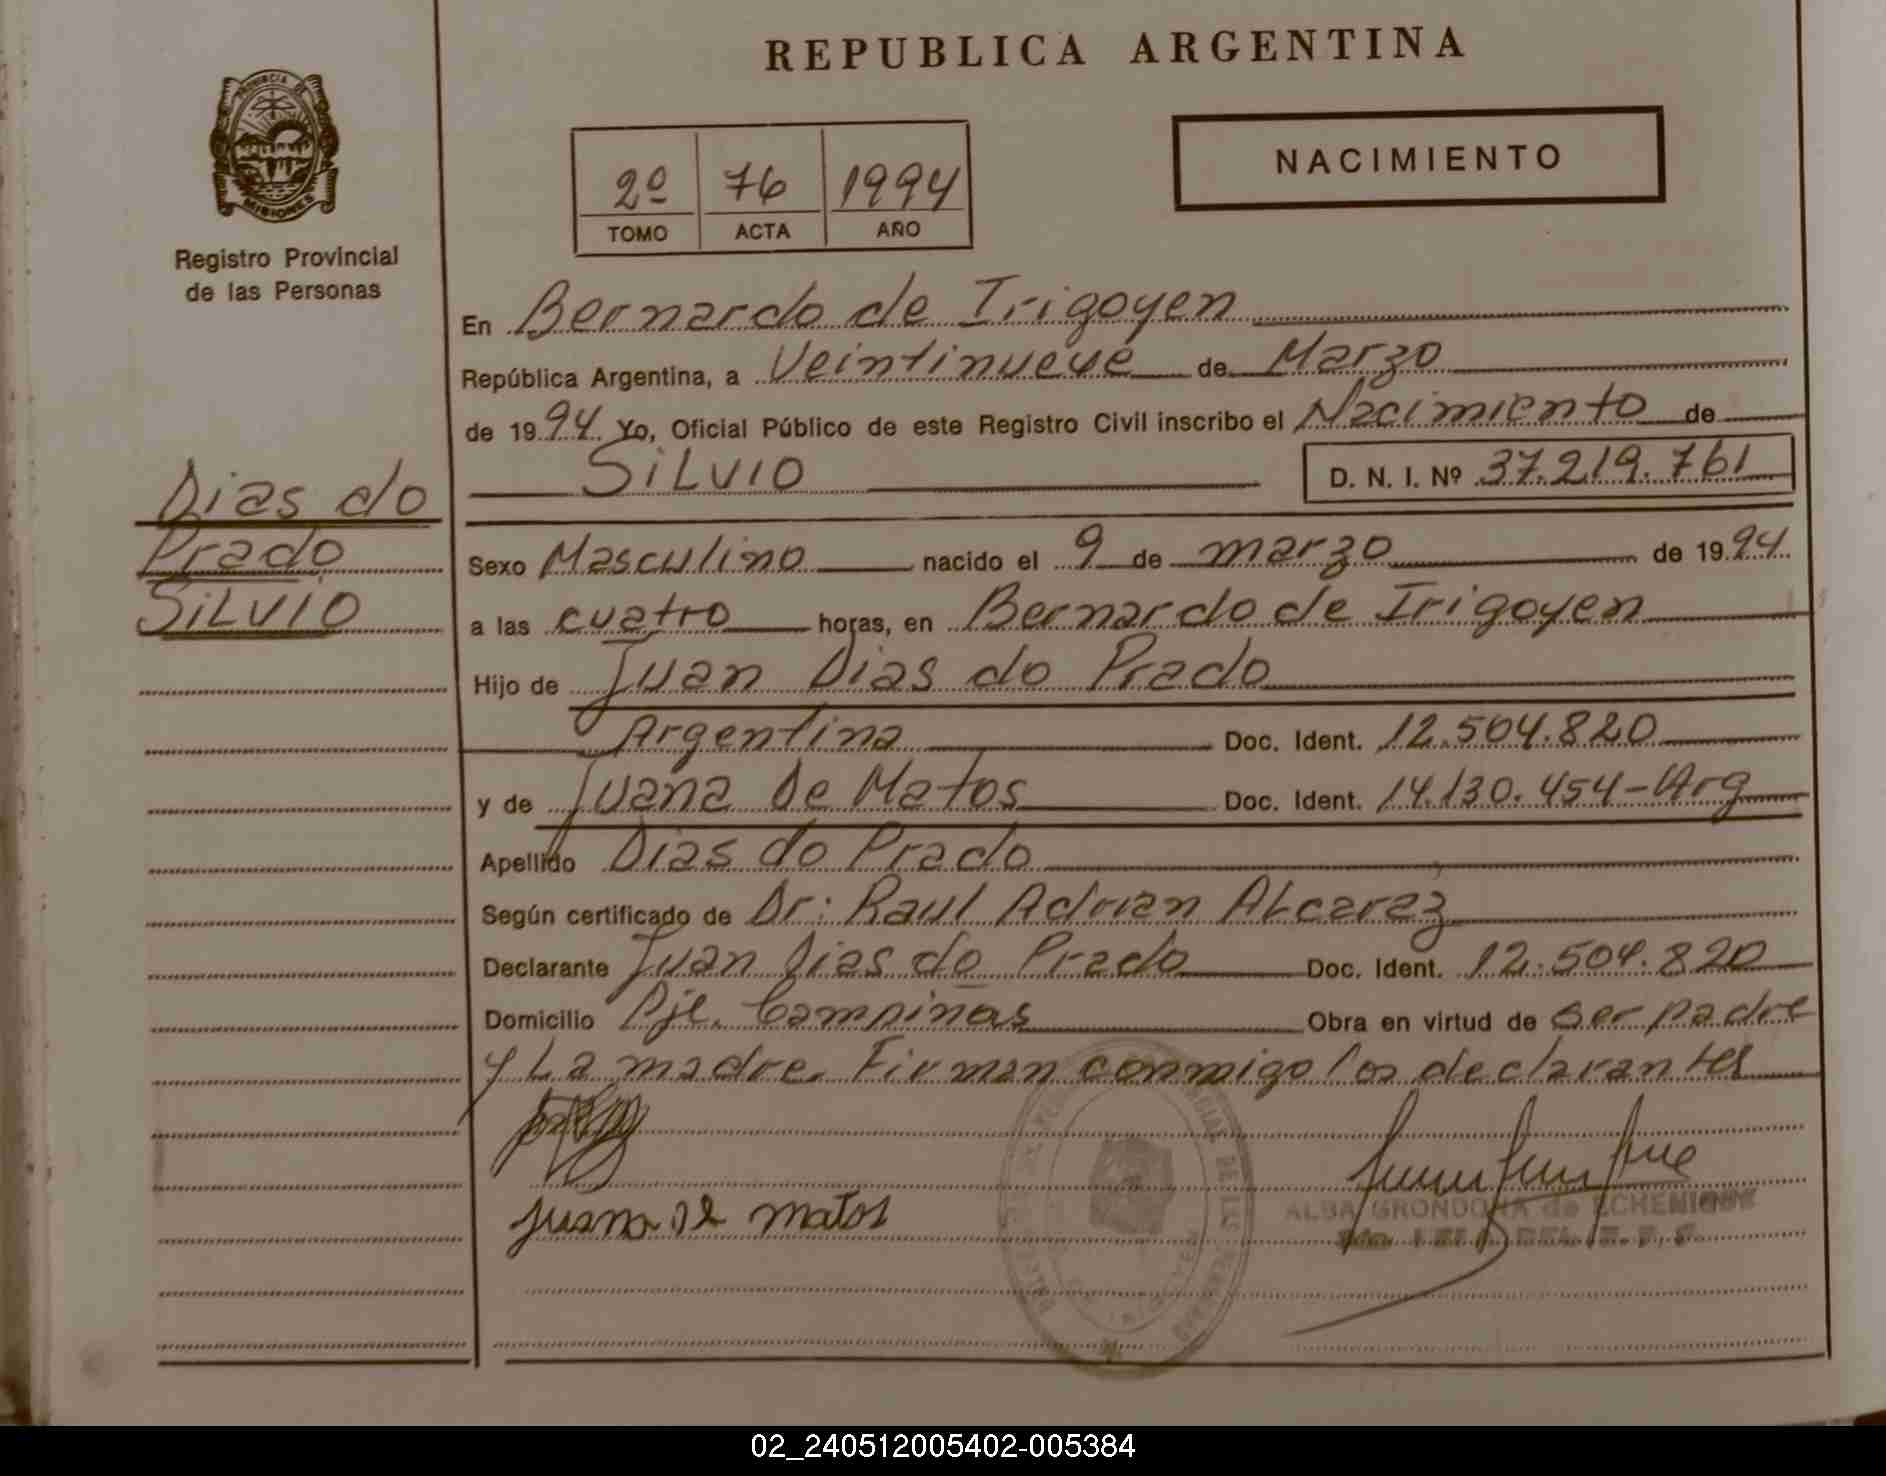 REPUBLICA ARGENTINA
PROVINCIA DE
MISIONES
Registro Provincial
de las Personas
2º 76 1994
TOMO ACTA AÑO
NACIMIENTO
En Bernardo de Irigoyen
República Argentina, a Veintinueve de Marzo
de 1994. Yo, Oficial Público de este Registro Civil inscribo el Nacimiento de
SILVIO D. N. I. Nº 37.219.761
Dias do
Prado
SILVIO
Sexo Masculino nacido el 9 de marzo de 1994.
a las cuatro horas, en Bernardo de Irigoyen
Hijo de Juan Dias do Prado
Argentina Doc. Ident. 12.504.820
y de Juana De Matos Doc. Ident. 14.130.454-Arg
Apellido Dias do Prado
Según certificado de Dr: Raul Adrian Alcaraz
Declarante Juan Dias do Prado Doc. Ident. 12.504.820
Domicilio Pje. Campinas Obra en virtud de ser padre
y La madre. Firman conmigo los declarantes
Juana de matos
ALBA GRONDONA de ECHENIQUE
02_240512005402-005384